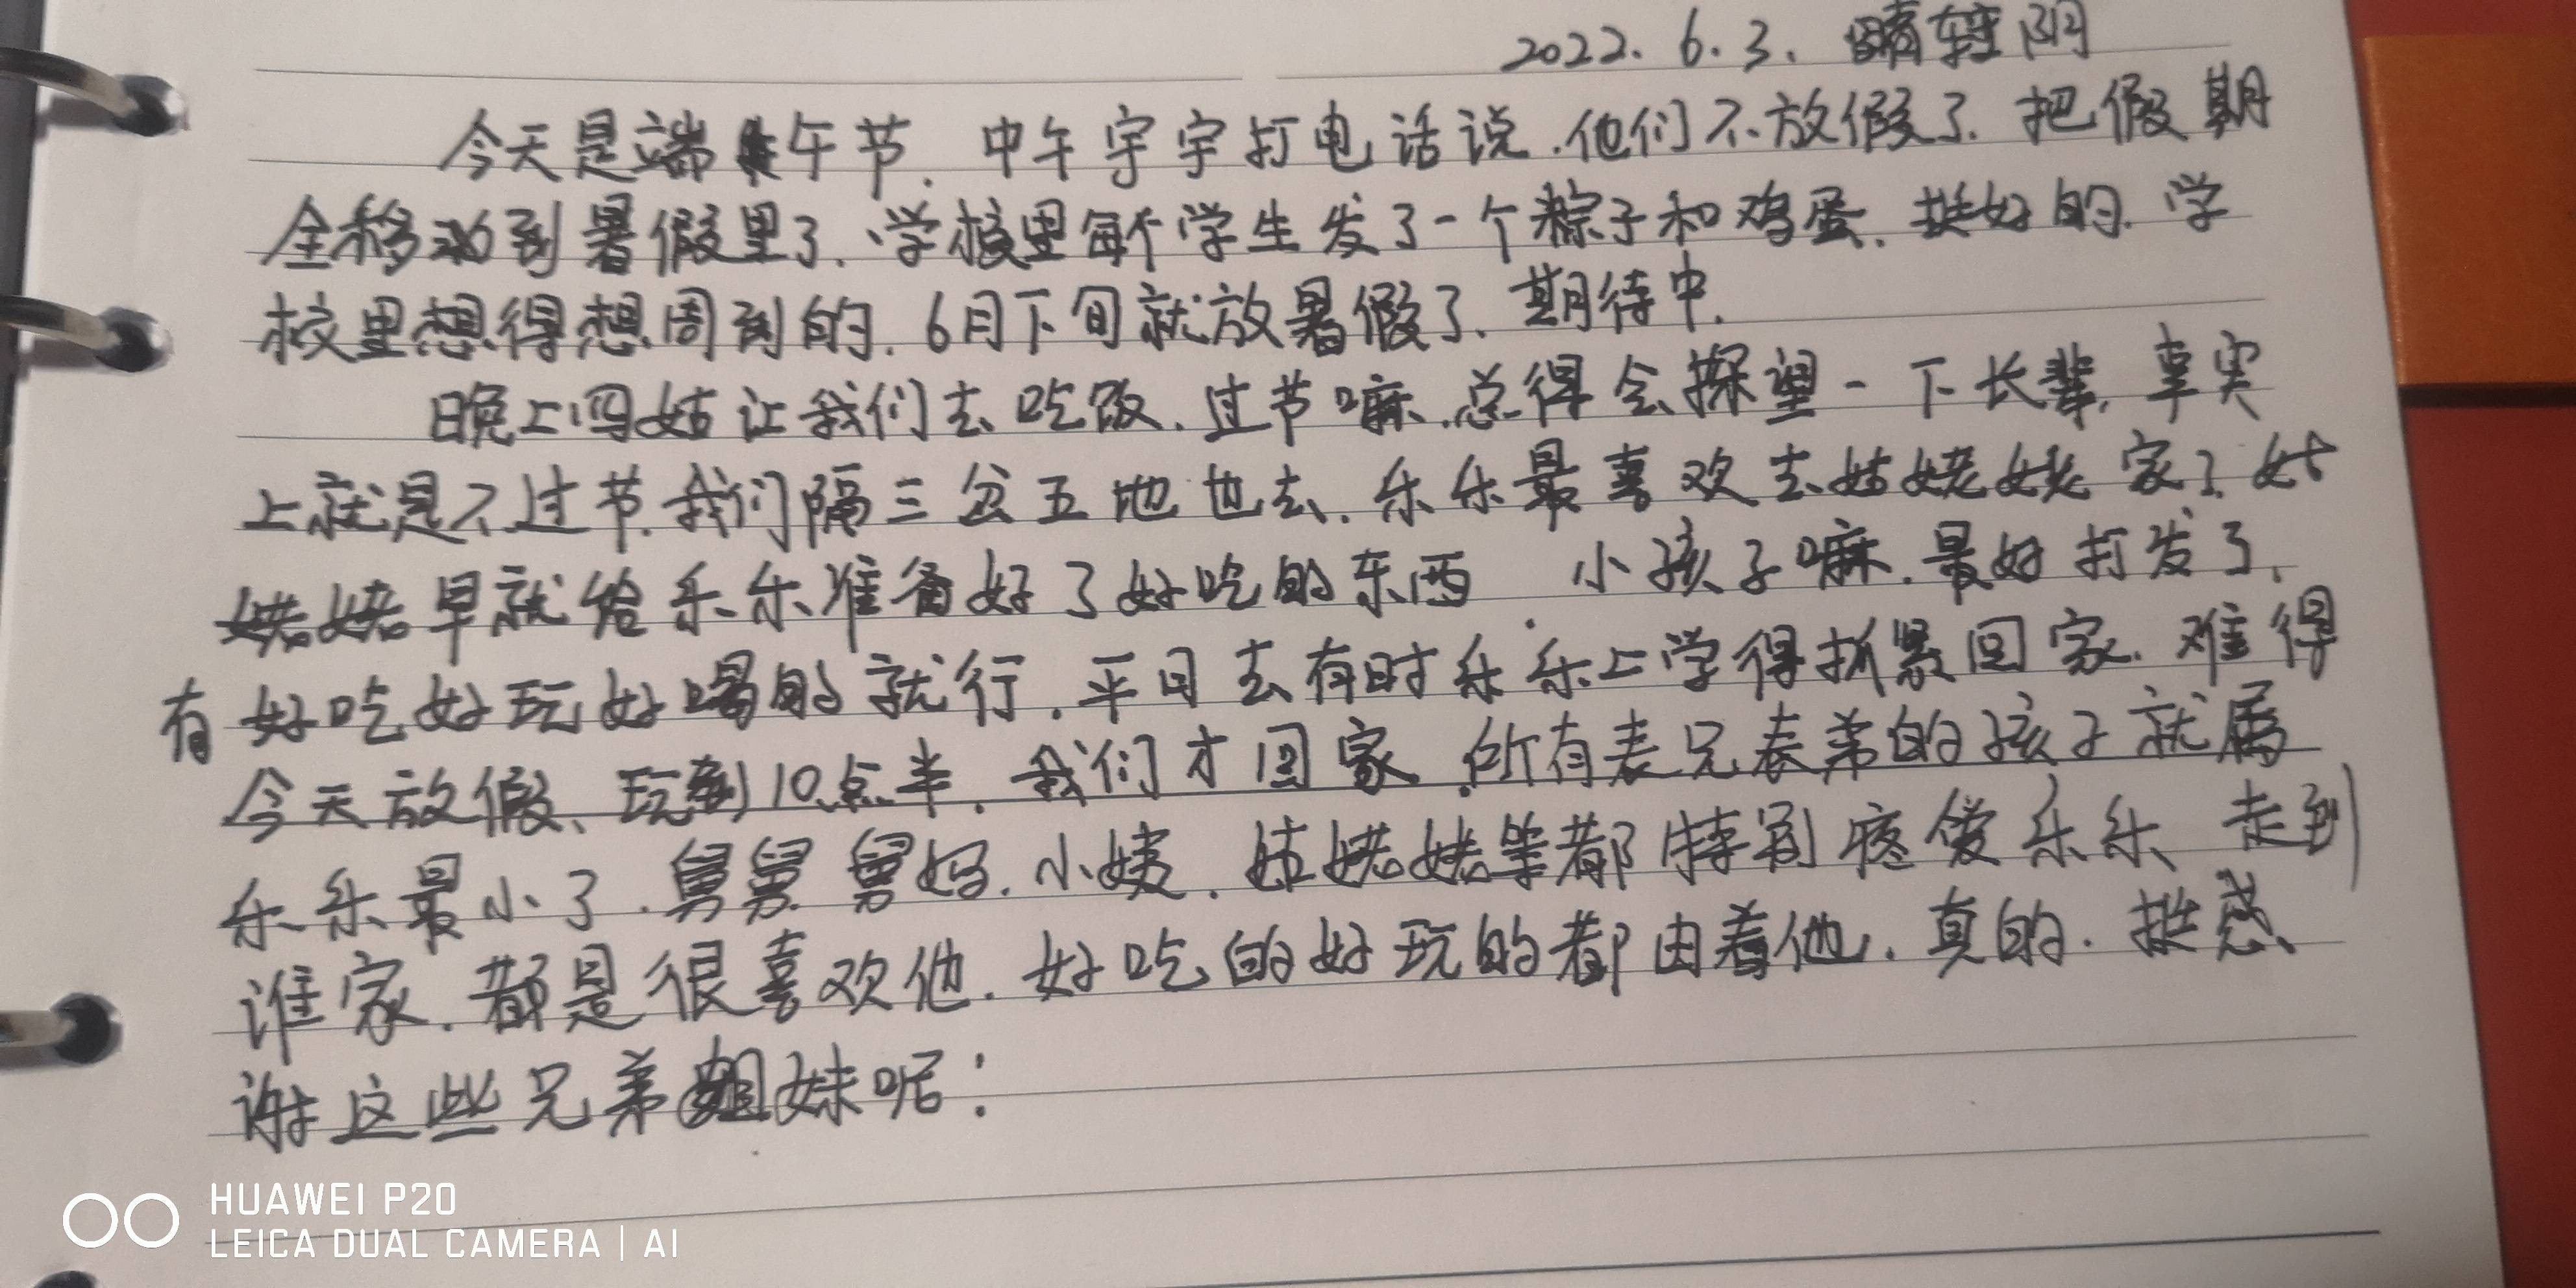 2022.6.3. 晴转阴
今天是端午节.中午宇宇打电话说.他们不放假了.把假期
全移动到暑假里了.学校里每个学生发了一个粽子和鸡蛋.挺好的.学
校里想得想周到的.6月下旬就放暑假了.期待中.
晚上四姑让我们去吃饭.过节嘛.总得会探望一下长辈.事实
上就是不过节.我们隔三岔五地也去.乐乐最喜欢去姑姥姥家了.姑
姥姥早就给乐乐准备好了好吃的东西.小孩子嘛.最好打发了.
有好吃好玩好喝的就行.平日去有时乐乐上学得抓紧回家.难得
今天放假、玩到10点半.我们才回家.所有表兄表弟的孩子就属
乐乐最小了.舅舅舅妈.小姨.姑姥姥等都特别疼爱乐乐、走到
谁家.都是很喜欢他.好吃的好玩的都由着他.真的.挺感
谢这些兄弟姐妹呢！
HUAWEI P20
LEICA DUAL CAMERA | AI